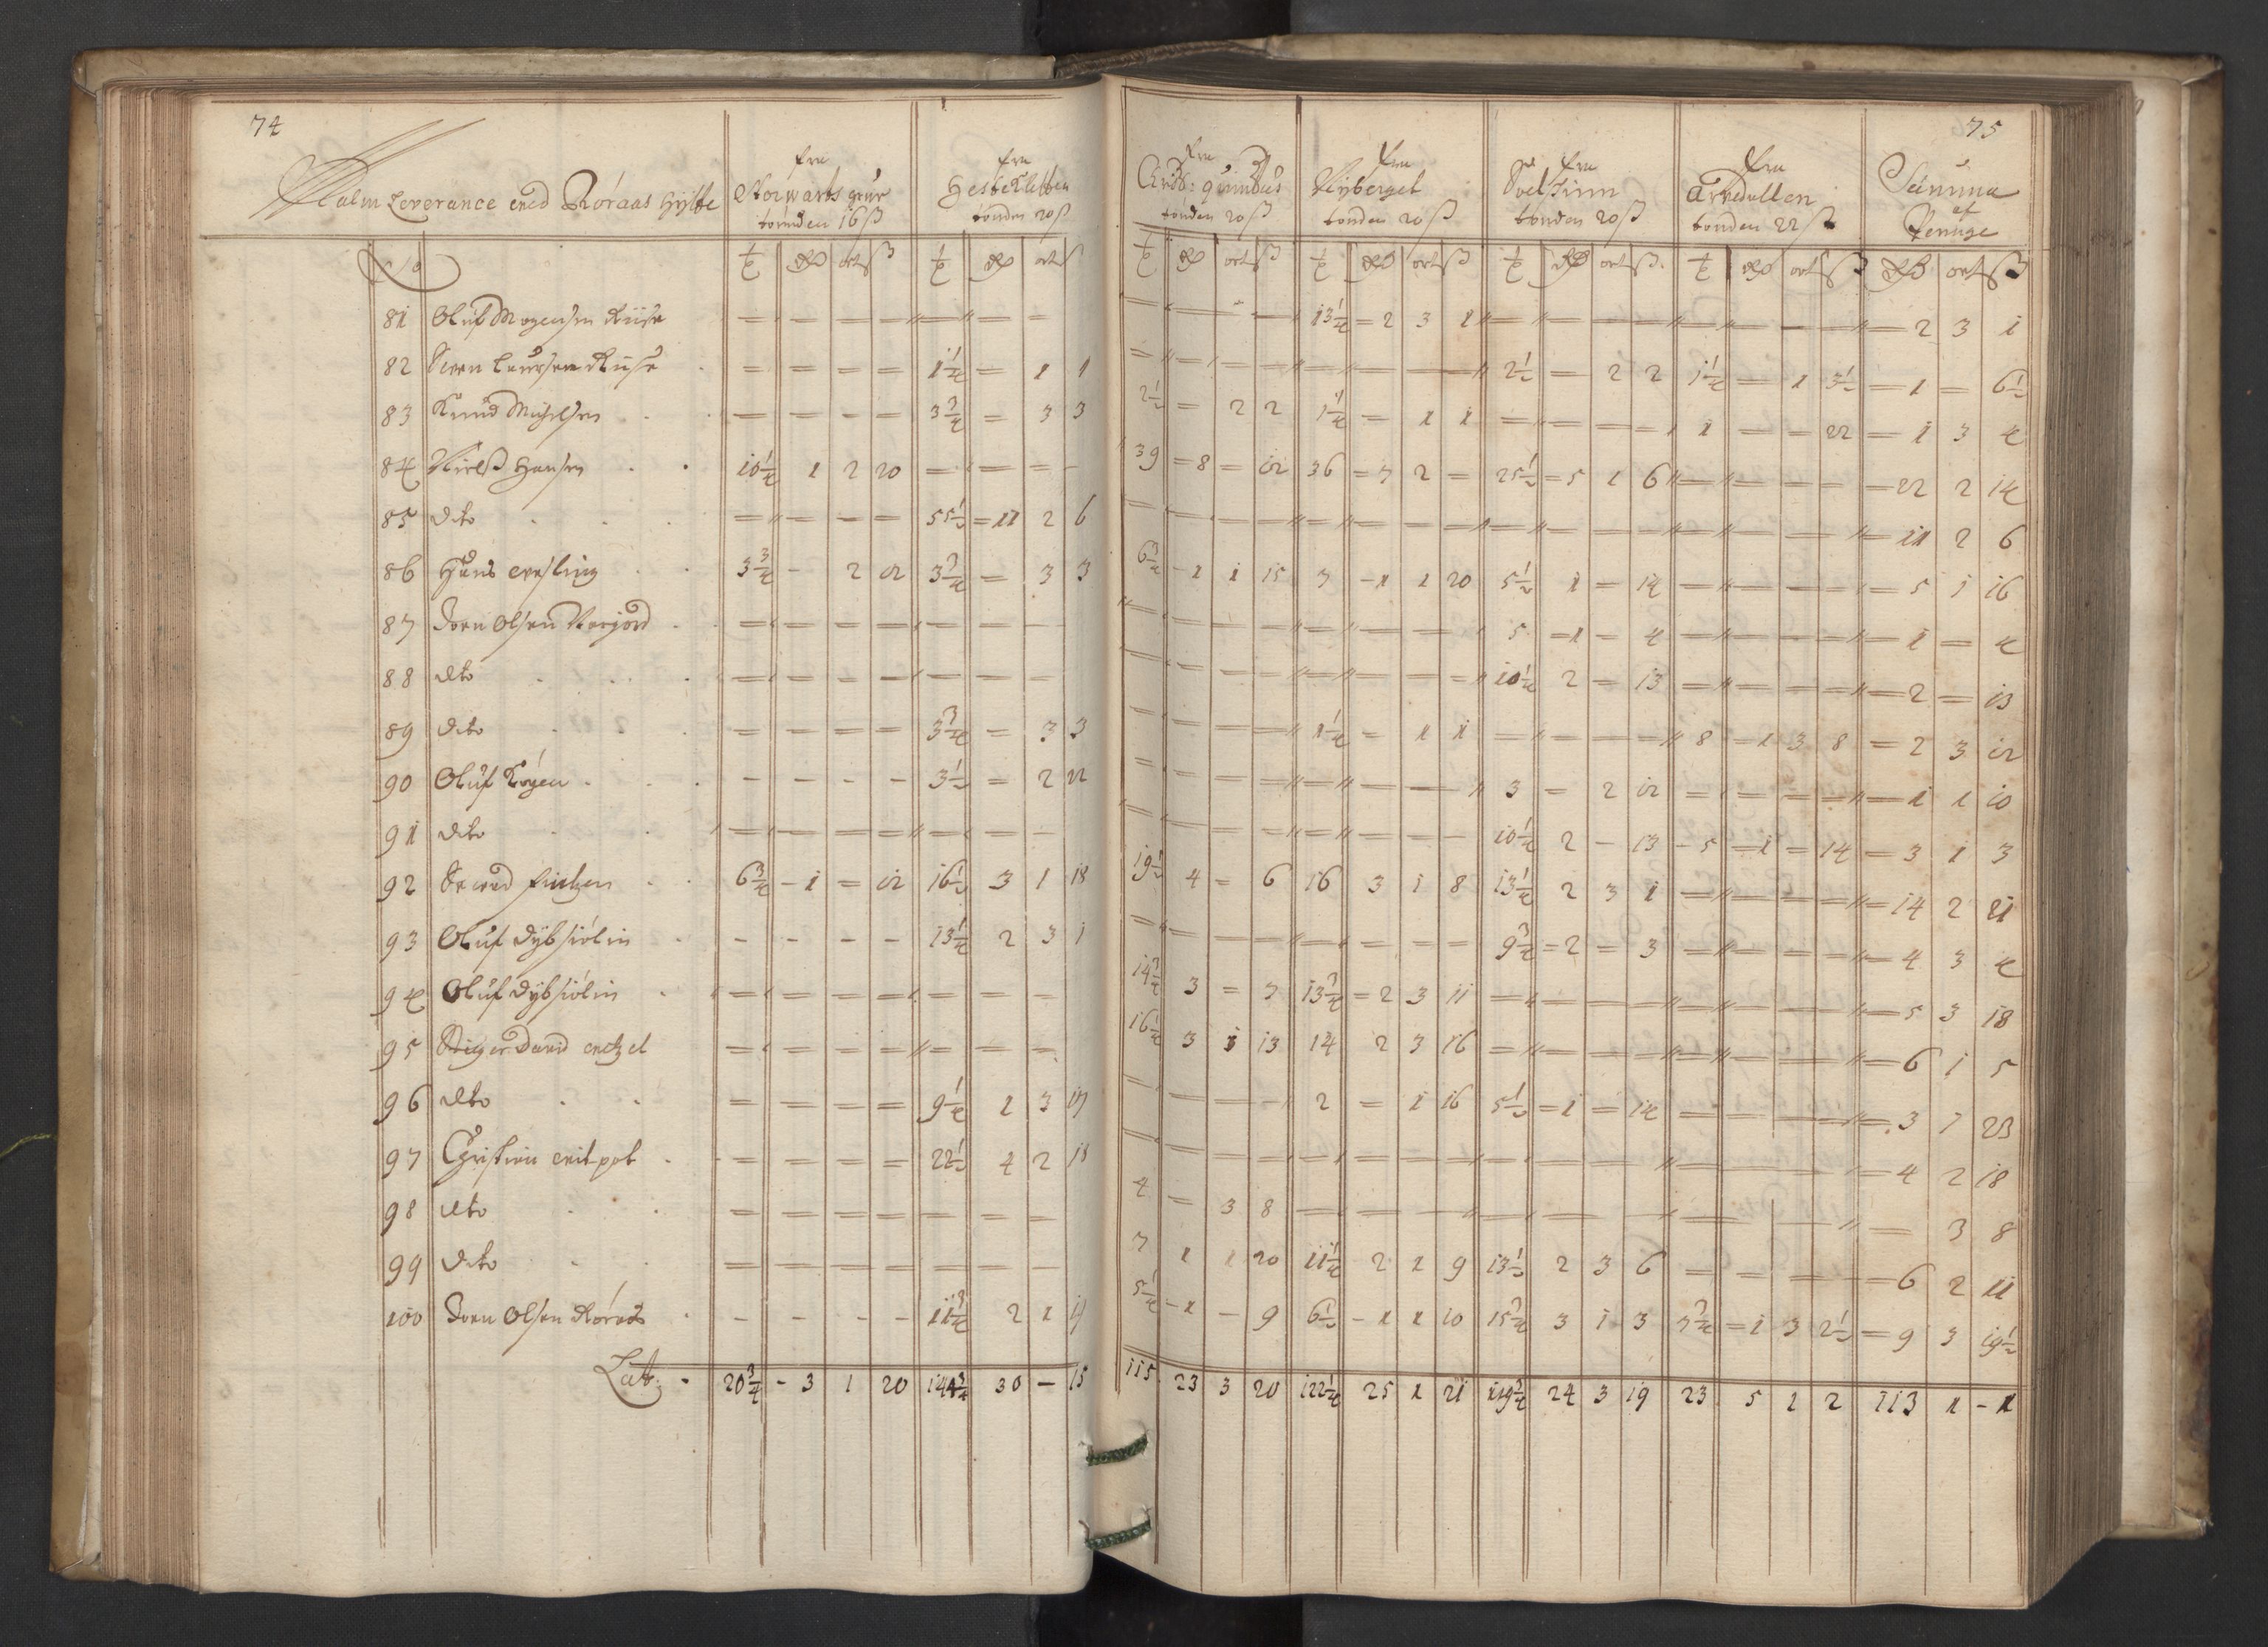 74
Malm Leverance med Røraas Hytte
fra Storwarts grube tønden 16 ß
fra Hesteklitten tønden 20 ß
75
fra Chris: quintus tønden 20 ß
fra Nyberget tønden 20 ß
fra tønden 20 ß
fra Arvedallen tønden 22 ß
Summa af Penge
No ort ß ort ß ort ß ort ß ort ß ort ß ort ß
81 Oluf Mogensen Riise 13¼ 2 3 1 2 3 1
82 Laursen Riise 1¼ 1 1 2½ 2 2 1¼ 1 3½ 1 6½
83 Knud Michelsen 3¾ 3 3 2½ 2 2 1¼ 1 1 1 22 1 3 4
84 Nielß Hansen 10¼ 1 2 20 39 8 12 36 7 2 25½ 5 1 6 22 2 14
85 dito 55½ 11 2 6 11 2 6
86 Hans 3¾ 2 12 3¾ 3 3 6¾ 1 1 15 7 1 1 20 5½ 1 14 5 1 16
87 Joen Olsen 5 1 4 1 4
88 dto 10¼ 2 13 2 13
89 dito 3¾ 3 3 1¼ 1 1 8 1 3 8 2 3 12
90 Oluf 3½ 2 22 3 2 12 1 1 10
91 dito 10¼ 2 13 5 1 14 3 1 3
92 6¾ 1 12 16½ 3 1 18 19½ 4 6 16 3 1 8 13¼ 2 3 1 14 2 21
93 Oluf Dybsiölin 13¼ 2 3 1 9¾ 2 3 4 3 4
94 Oluf Dybsiölin 14¾ 3 7 13¾ 2 3 11 5 3 18
95 David 16¼ 3 1 13 14 2 3 16 6 1 5
96 dto 9¼ 1 3 17 2 1 16 5½ 1 14 3 1 23
97 Christian 22½ 4 2 18 4 2 18
98 dto 4 3 8 3 8
99 dito 7 1 1 20 11¼ 2 1 9 13½ 2 3 6 6 2 11
100 Joen Olsen Röraas 11¾ 2 1 19 5¼ 1 9 6½ 1 1 10 15¾ 3 1 3 7¾ 1 3 2½ 9 3 19½
Lat: 20¾ 3 1 20 144¾ 30 15 115 23 3 20 122¼ 25 1 21 119¾ 24 3 19 23 5 1 2 113 1 1